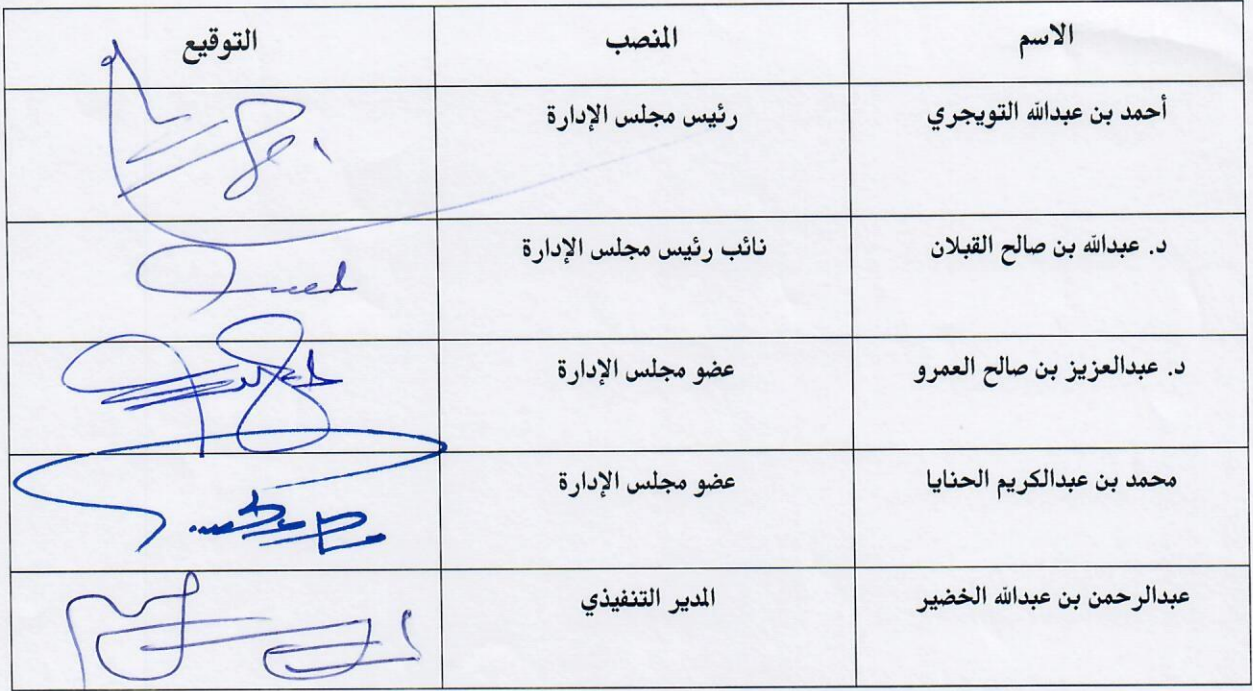 الاسم المنصب التوقيع
أحمد بن عبدالله التويجري رئيس مجلس الإدارة
د. عبدالله بن صالح القبلان نائب رئيس مجلس الإدارة
د. عبدالعزيز بن صالح العمرو عضو مجلس الإدارة
محمد بن عبدالكريم الحنايا عضو مجلس الإدارة
عبدالرحمن بن عبدالله الخضير المدير التنفيذي